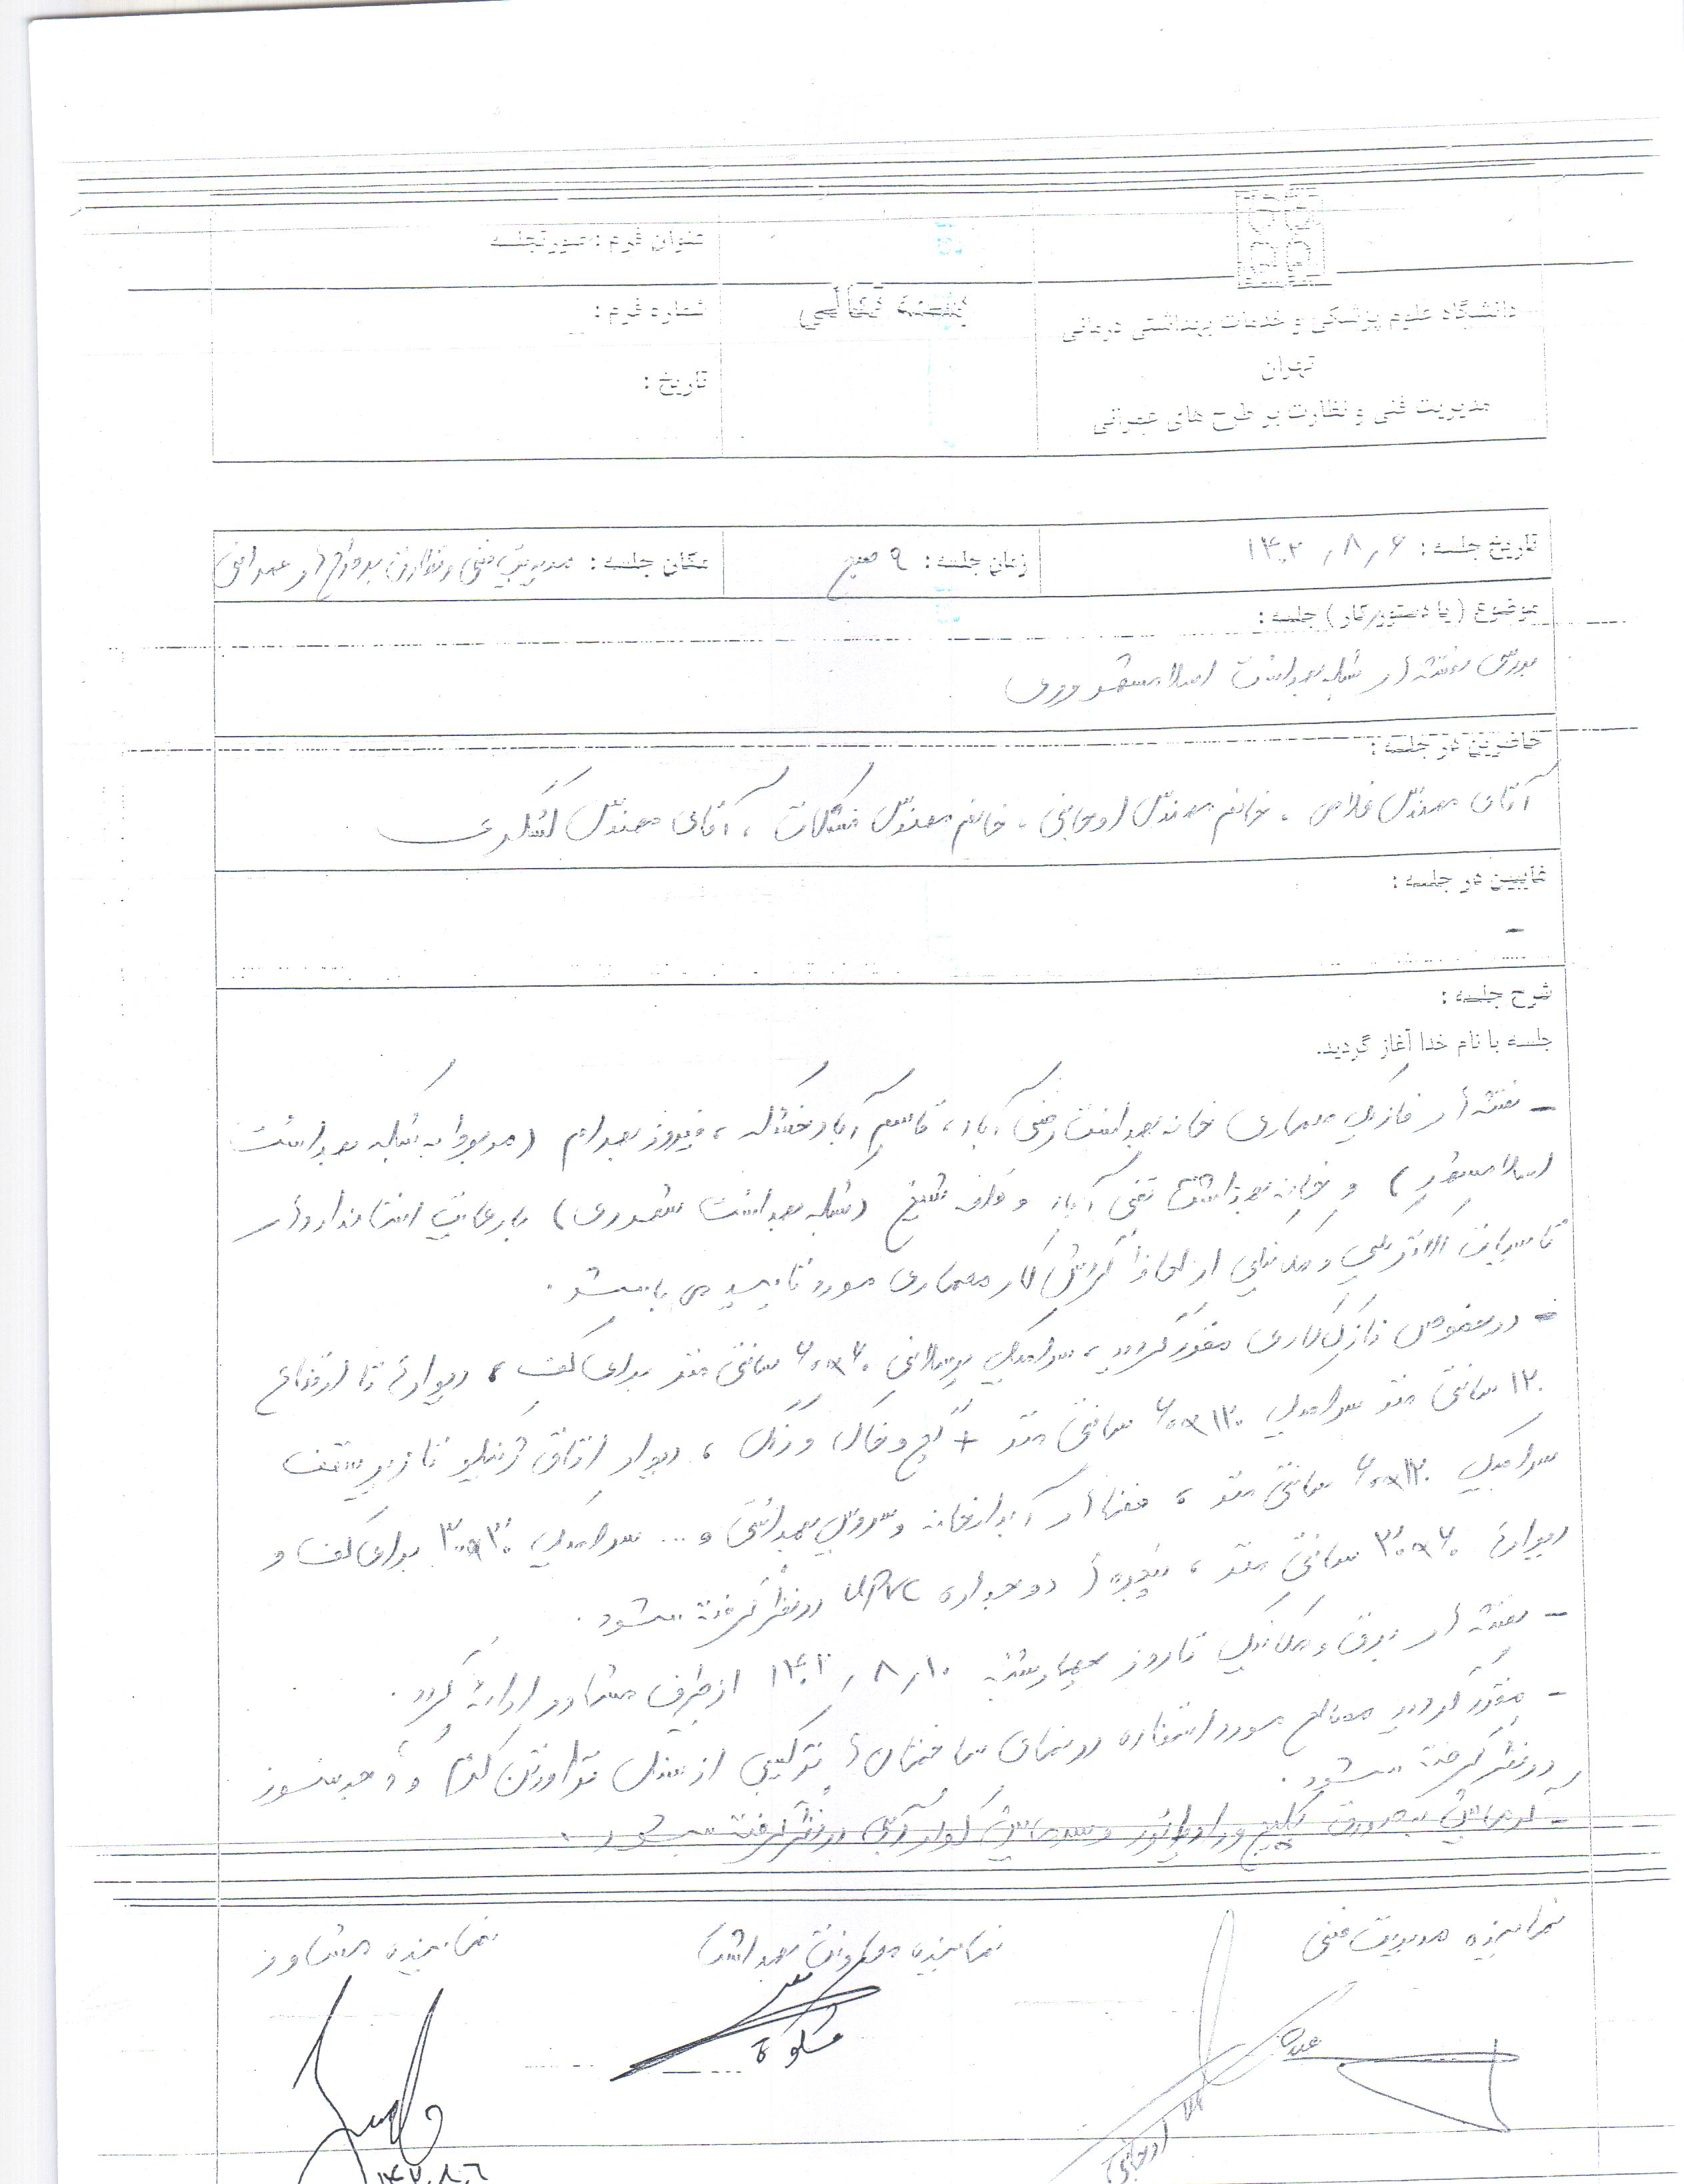 دانشگاه علوم پزشکی و خدمات بهداشتی درمانی
تهران
مدیریت فنی و نظارت بر طرح های عمرانی
بسمه تعالی
عنوان فرم : صورتجلسه
شماره فرم :
تاریخ :
تاریخ جلسه : ۱۴۰۲/۸/۶
زمان جلسه : ۹ صبح
مکان جلسه : مدیریت فنی و نظارت بر طرح های عمرانی
موضوع (یا دستور کار) جلسه :
بررسی نقشه های شبکه بهداشت اسلامشهر و ری
حاضرین در جلسه :
آقای مهندس فلاحی ، خانم مهندس اوجانی ، خانم مهندس مشکات ، آقای مهندس لشگری
غایبین در جلسه :
-
شرح جلسه :
جلسه با نام خدا آغاز گردید.
- نقشه های فاز یک معماری خانه بهداشت رضی آباد ، قاسم آباد خشکه ، فیروز بهرام (مربوط به شبکه بهداشت
اسلامشهر) و خانه بهداشت تقی آباد و قلعه شیخ (شبکه بهداشت شهرری) با رعایت استانداردهای
تاسیسات الکتریکی و مکانیکی از لحاظ گردش کار معماری مورد تایید می باشد .
- درخصوص نازک کاری مقرر گردید ، سرامیک پرسلانی ۶۰×۶۰ سانتی متر برای کف ، دیوارها تا ارتفاع
۱۲۰ سانتی متر سرامیک ۶۰×۱۲۰ سانتی متر + گچ و خاک و رنگ ، دیوار اتاق ژنیکو تا زیر سقف
سرامیک ۶۰×۱۲۰ سانتی متر ، فضاهای آبدارخانه و سرویس بهداشتی و ... سرامیک ۳۰×۳۰ برای کف و
دیوارها ۳۰×۶۰ سانتی متر ، پنجره ها دو جداره UPVC در نظر گرفته میشود .
- نقشه های برق و مکانیک تا روز چهارشنبه ۱۴۰۲/۸/۱۰ از طرف مشاور ارائه گردد .
- مقرر گردید مصالح مورد استفاده در نمای ساختمان ها ترکیبی از سنگ تراورتن کرم و آجر نسوز
در نظر گرفته میشود .
- گرمایش بصورت پکیج و رادیاتور و سرمایش کولر آبی در نظر گرفته میشود .
نماینده مدیریت فنی
نماینده معاونت بهداشت
نماینده مشاور
اوجانی
مشکوة
۱۴۰۲.۸.۶